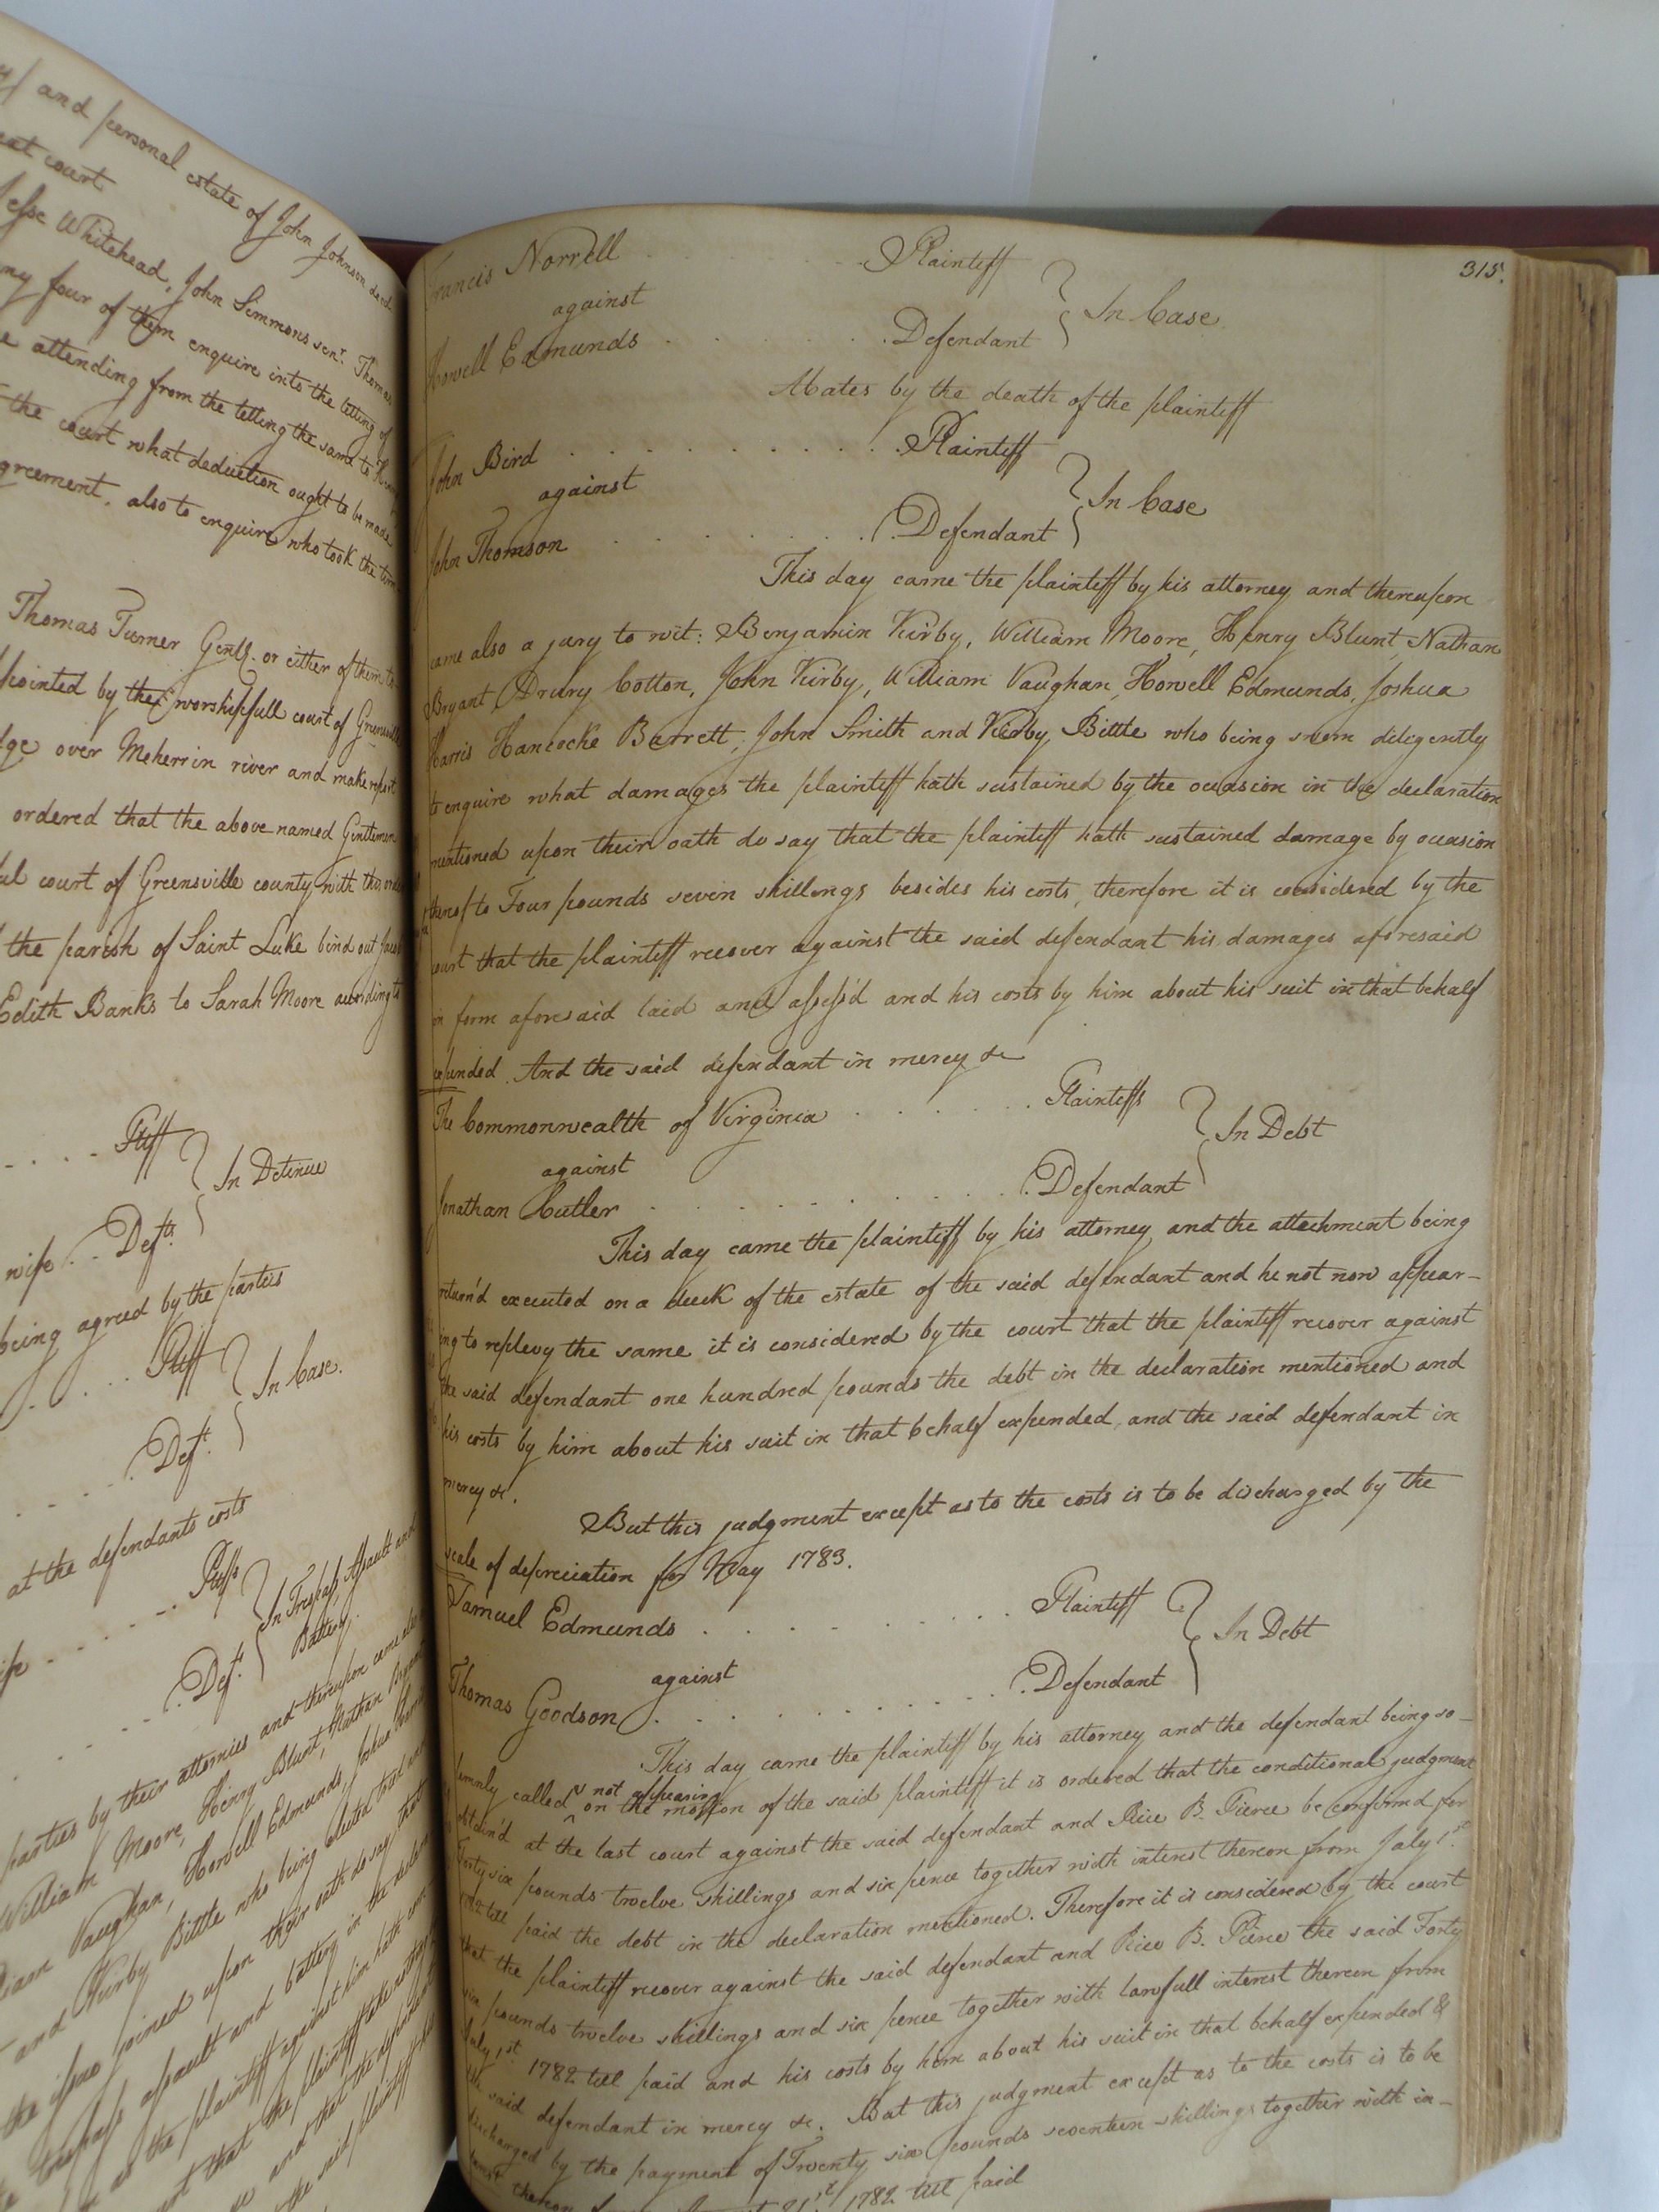 and personal estate of John Johnson decd.
court
Jesse Whitehead, John Simmons senr. Thomas
four of them enquire into the letting of
attending from the letting the same to
the court what deduction ought to be made
agreement, also to enquire who took the
Thomas Turner Gentn. or either of them to
appointed by the worshipfull court of Greensville
over Meherrin river and make report
ordered that the above named Gentlemen
court of Greensville county with this order
the parish of Saint Luke bind out
Edith Banks to Sarah Moore according to
Pltff
In Detinue
wife Defts.
being agreed by the parties
Pltff
In Case.
Deft.
at the defendants costs
Pltffs
In Trespass, Assault and
Battery.
Deft.
parties by their attornies and thereupon came
William Moore, Henry Blunt, Nathan Bryant
Vaughan, Howell Edmunds, Joshua
and Kirby Bittle who being elected tried and
the issue joined upon their oath do say that
trespass assault and battery in the
the plaintiff against him hath
that the plaintiff take nothing
and that the
the said plaintiff
315.
Francis Norrell Plaintiff
against
In Case
Howell Edmunds Defendant
Abates by the death of the plaintiff
John Bird Plaintiff
against
In Case
John Thomson Defendant
This day came the plaintiff by his attorney and thereupon
came also a jury to wit: Benjamin Kirby, William Moore, Henry Blunt, Nathan
Bryant, Drury Cotton, John Kirby, William Vaughan, Howell Edmunds, Joshua
Harris Hancocke Barrett, John Smith and Kirby Bittle who being sworn diligently
to enquire what damages the plaintiff hath sustained by the occasion in the declaration
mentioned upon their oath do say that the plaintiff hath sustained damage by occasion
thereof to Four pounds seven shillings besides his costs, therefore it is considered by the
court that the plaintiff recover against the said defendant his damages aforesaid
in form aforesaid laid and assess'd and his costs by him about his suit in that behalf
expended. And the said defendant in mercy &c
The Commonwealth of Virginia Plaintiffs
against
In Debt
Jonathan Cutler Defendant
This day came the plaintiff by his attorney and the attachment being
return'd executed on a desk of the estate of the said defendant and he not now appear-
ing to replevy the same it is considered by the court that the plaintiff recover against
the said defendant one hundred pounds the debt in the declaration mentioned and
his costs by him about his suit in that behalf expended, and the said defendant in
mercy &c.
But this judgment except as to the costs is to be discharged by the
scale of depreciation for May 1783.
Samuel Edmunds Plaintiff
against
In Debt
Thomas Goodson Defendant
This day came the plaintiff by his attorney and the defendant being so-
lemnly called & not appearing on the motion of the said plaintiff it is ordered that the conditional judgment
obtain'd at the last court against the said defendant and Rice B. Pierce be confirmd for
Forty six pounds twelve shillings and six pence together with interest thereon from July 1st.
1782 till paid the debt in the declaration mentioned. Therefore it is considered by the court
that the plaintiff recover against the said defendant and Rice B. Pierce the said Forty
six pounds twelve shillings and six pence together with lawfull interest thereon from
July 1st. 1782 till paid and his costs by him about his suit in that behalf expended &
the said defendant in mercy &c. But this judgment except as to the costs is to be
discharged by the payment of Twenty six pounds seventeen shillings together with in-
terest thereon from 1782 till paid